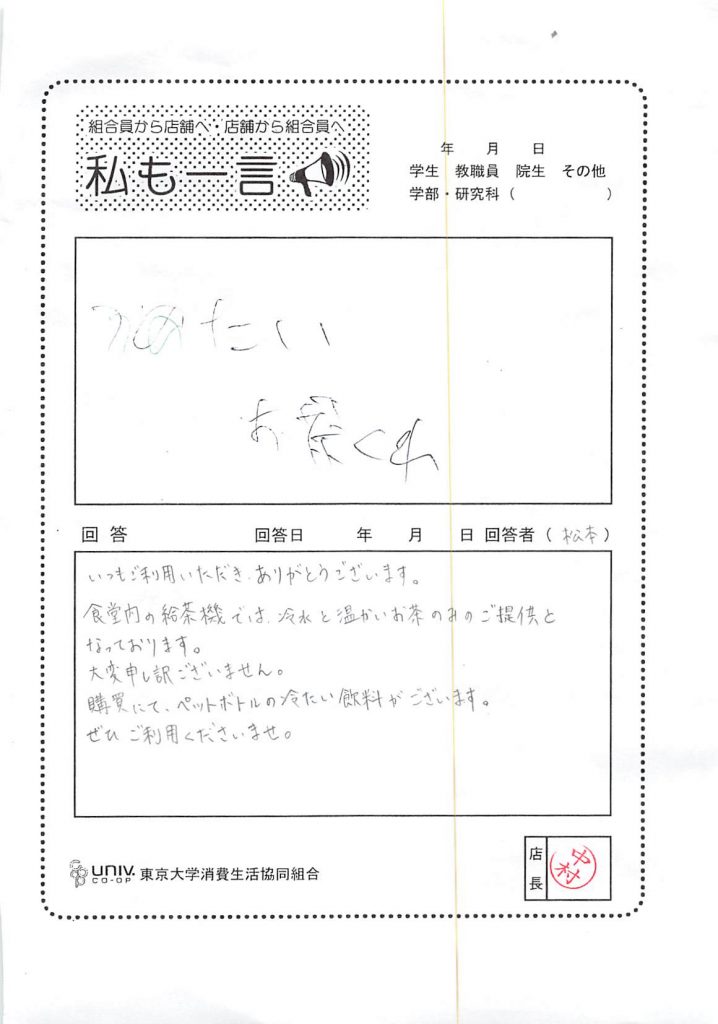 組合員から店舗へ・店舗から組合員へ
私も一言
年 月 日
学生 教職員 院生 その他
学部・研究科( )
つめたい
お茶くれ
回答 回答日 年 月 日 回答者(松本)
いつもご利用いただき、ありがとうございます。
食堂内の給茶機では、冷水と温かいお茶のみのご提供と
なっております。
大変申し訳ございません。
購買にて、ペットボトルの冷たい飲料がございます。
ぜひご利用くださいませ。
店長 中村
UNIV. CO-OP 東京大学消費生活協同組合